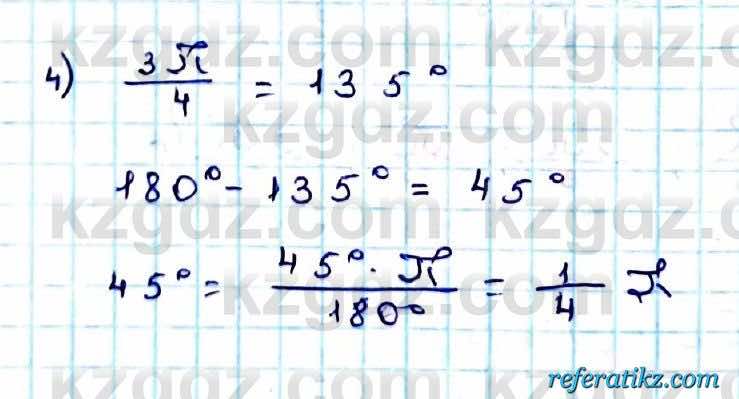 kzgdz.com
4) 3π/4 = 135°
kzgdz.com
180° - 135° = 45°
kzgdz.com
45° = 45° · π/180° = 1/4 π
kzgdz.com
referatikz.com